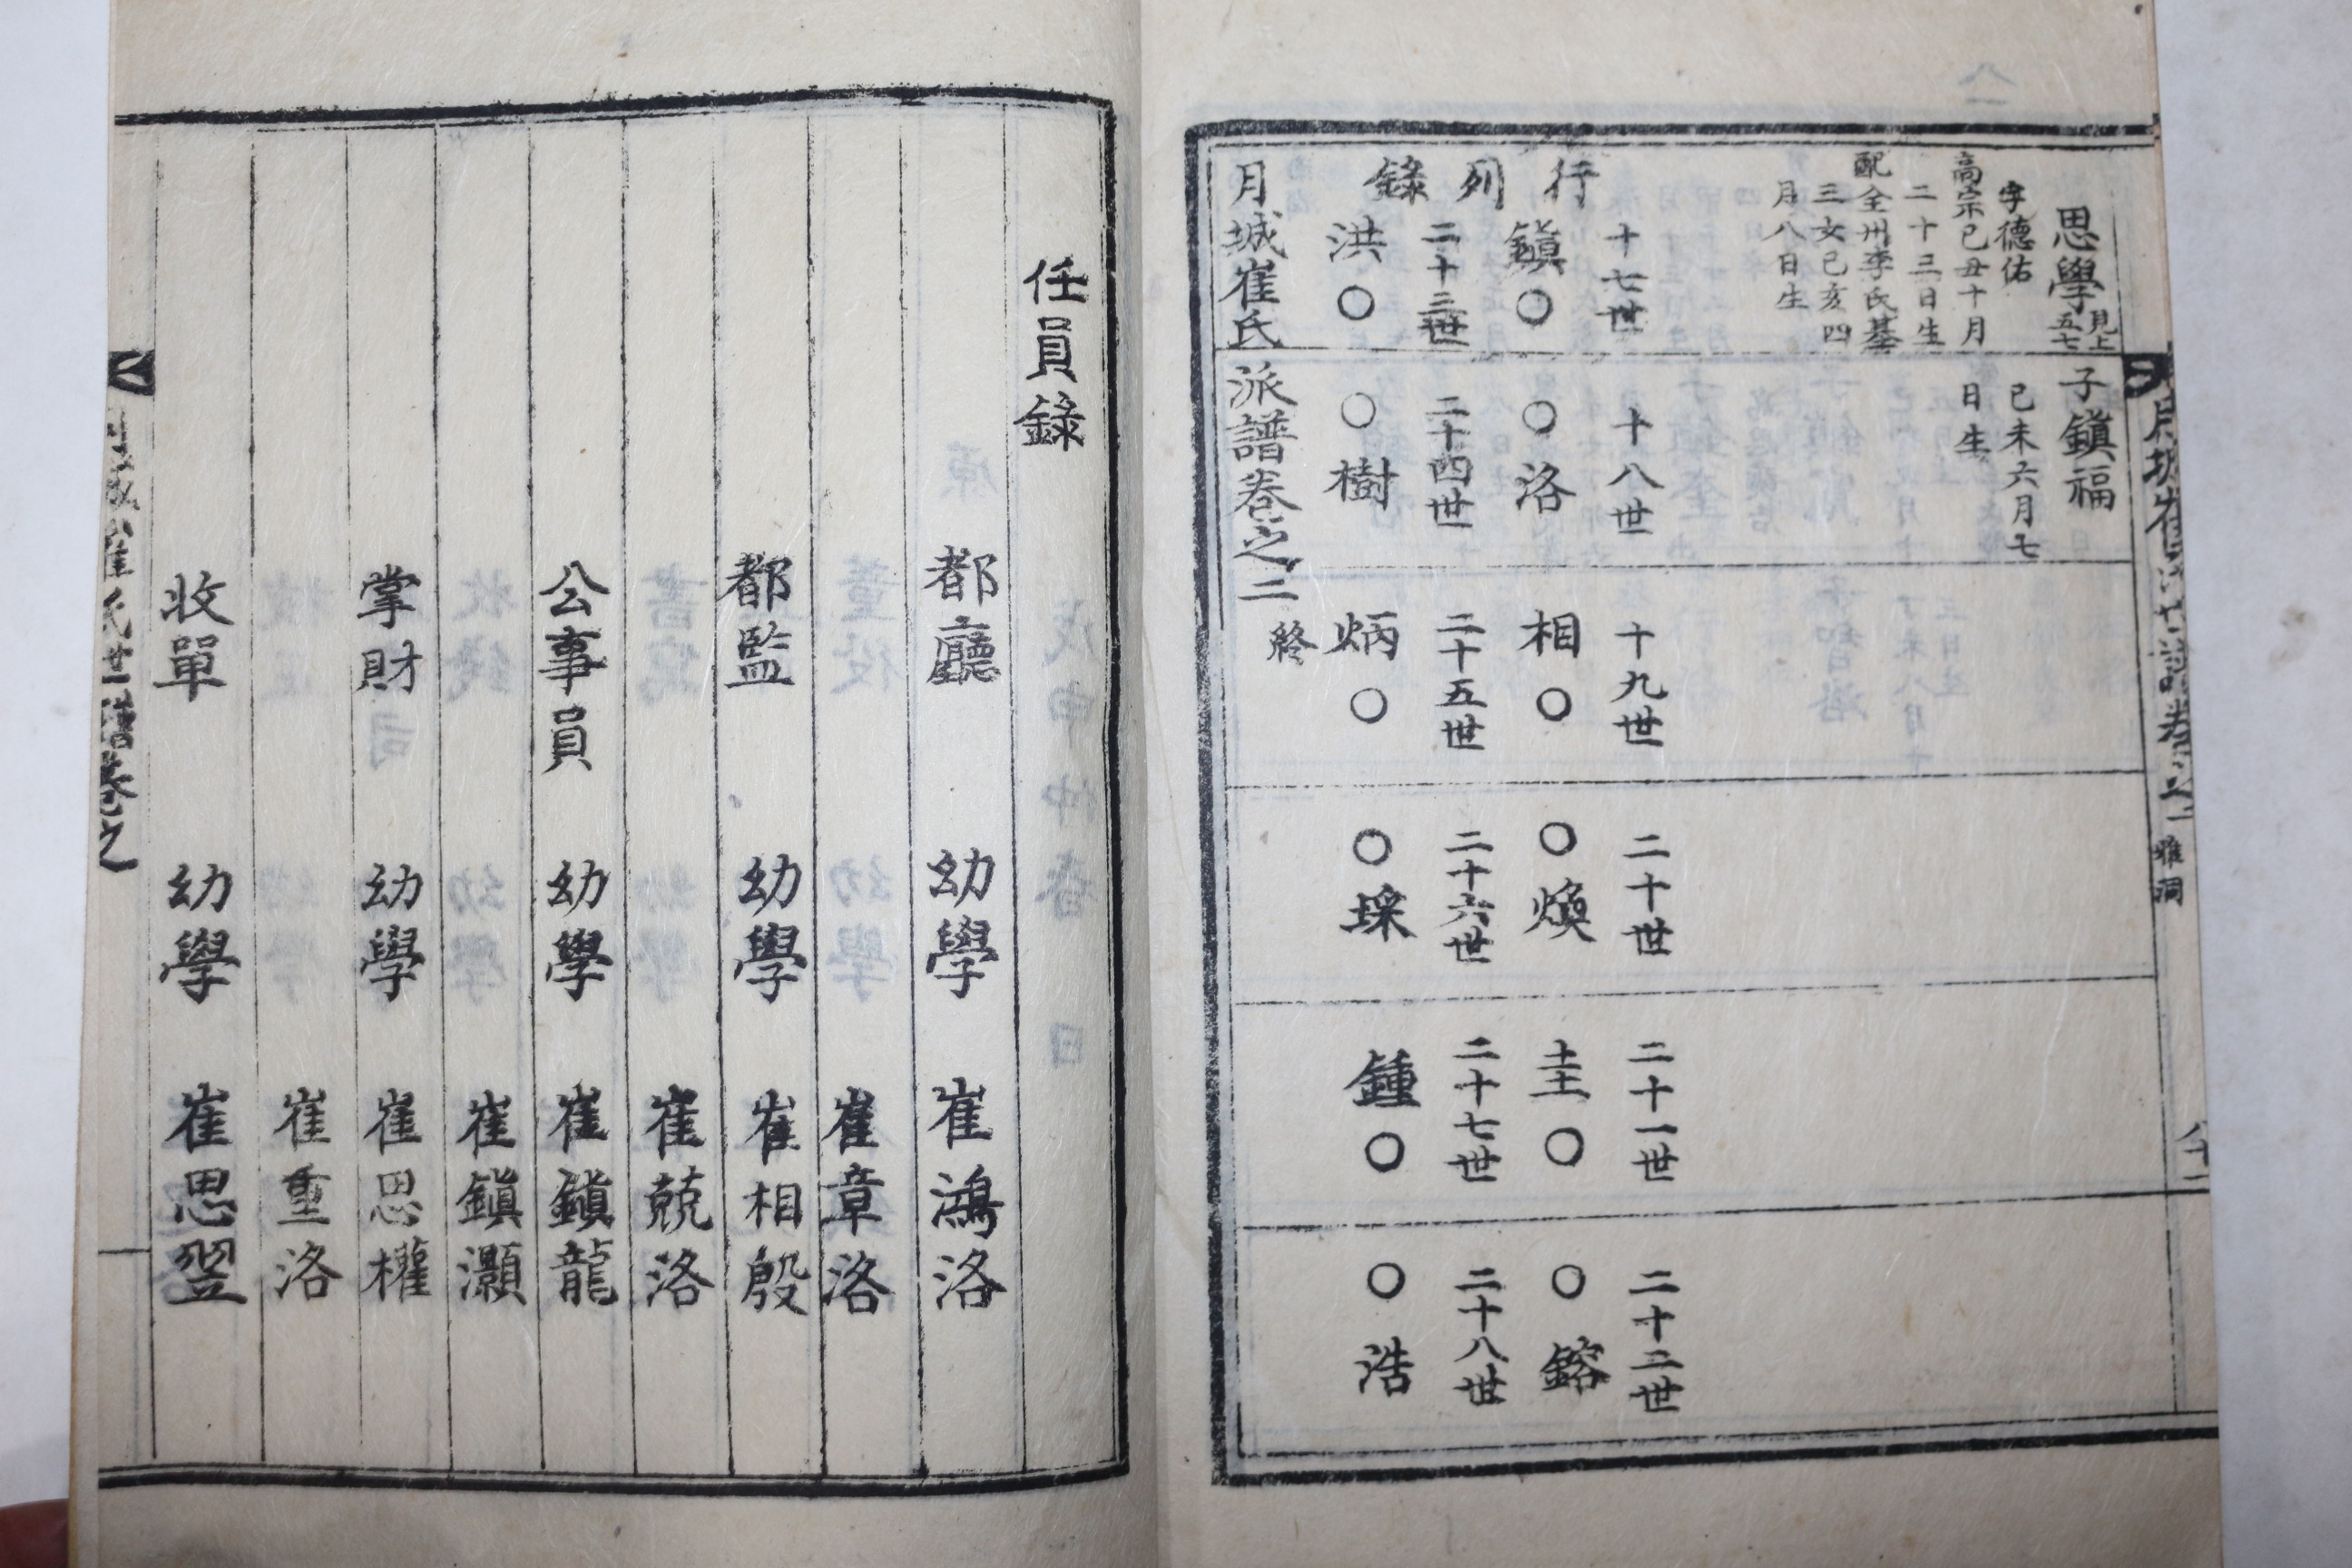 月城崔氏世譜卷之二 雅洞 八十二
思學 見上五七
字德佑
高宗己丑十月
二十三日生
配全州李氏基
三女己亥四
月八日生
子鎭福
己未六月七
日生
行列錄
十七世 十八世 十九世 二十世 二十一世 二十二世
鎭○ ○洛 相○ ○煥 圭○ ○鎔
二十三世 二十四世 二十五世 二十六世 二十七世 二十八世
洪○ ○樹 炳○ ○埰 鍾○ ○浩
月城崔氏派譜卷之二 終
任員錄
都廳 幼學 崔鴻洛
崔章洛
都監 幼學 崔相殷
崔兢洛
公事員 幼學 崔鎭龍
崔鎭灝
掌財 幼學 崔思權
崔重洛
收單 幼學 崔思翌
月城崔氏世譜卷之